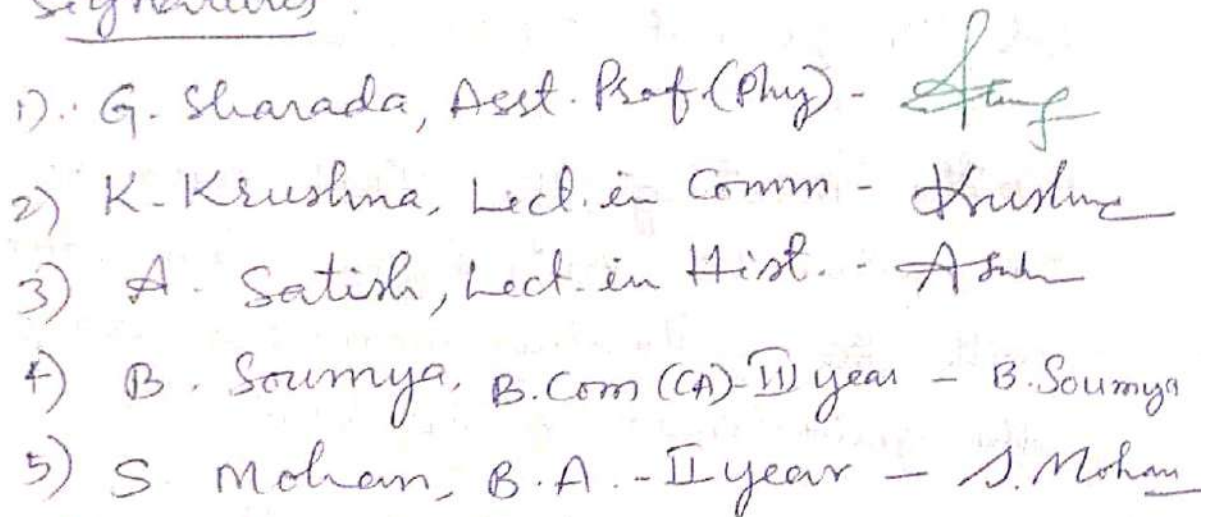 Signatures
1). G. Sharada, Asst. Prof (Phy) -
2) K. Krushna, Lect. in Comm - Krushna
3) A. Satish, Lect. in Hist. -
4) B. Soumya, B.Com (CA)-II year - B. Soumya
5) S Mohan, B.A.-II year - S. Mohan